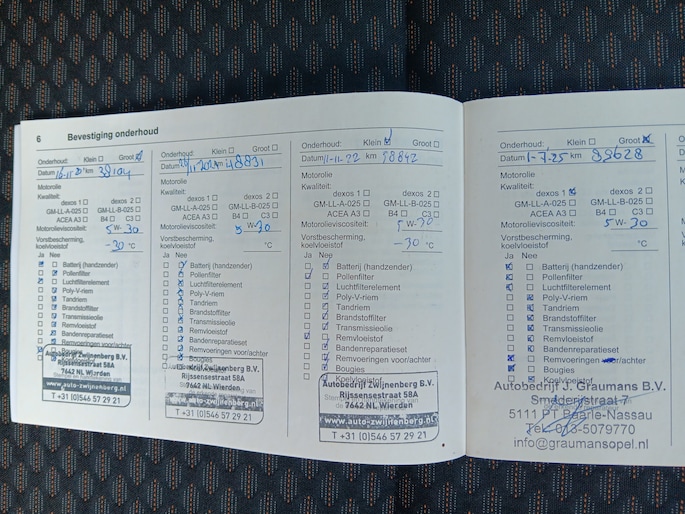 6 Bevestiging onderhoud
Onderhoud: Klein Groot
Datum 16-11-20 km 38104
Motorolie
Kwaliteit:
dexos 1 dexos 2
GM-LL-A-025 GM-LL-B-025
ACEA A3 B4 C3
Motorolieviscositeit: 5 W-30
Vorstbescherming,
koelvloeistof -30 °C
Ja Nee
Batterij (handzender)
Pollenfilter
Luchtfilterelement
Poly-V-riem
Tandriem
Brandstoffilter
Transmissieolie
Remvloeistof
Bandenreparatieset
Remvoeringen voor/achter
Autobedrijf Zwijnenberg B.V.
Rijssensestraat 58A
7642 NL Wierden
www.auto-zwijnenberg.nl
T +31 (0)546 57 29 21
Onderhoud: Klein Groot
Datum km 48831
Motorolie
Kwaliteit:
dexos 1 dexos 2
GM-LL-A-025 GM-LL-B-025
ACEA A3 B4 C3
Motorolieviscositeit: 5 W-30
Vorstbescherming,
koelvloeistof °C
Ja Nee
Batterij (handzender)
Pollenfilter
Luchtfilterelement
Poly-V-riem
Tandriem
Brandstoffilter
Transmissieolie
Remvloeistof
Bandenreparatieset
Remvoeringen voor/achter
Bougies
Autobedrijf Zwijnenberg B.V.
Rijssensestraat 58A
7642 NL Wierden
www.auto-zwijnenberg.nl
T +31 (0)546 57 29 21
Onderhoud: Klein Groot
Datum 11-11-22 km 58842
Motorolie
Kwaliteit:
dexos 1 dexos 2
GM-LL-A-025 GM-LL-B-025
ACEA A3 B4 C3
Motorolieviscositeit: 5 W-30
Vorstbescherming,
koelvloeistof -30 °C
Ja Nee
Batterij (handzender)
Pollenfilter
Luchtfilterelement
Poly-V-riem
Tandriem
Brandstoffilter
Transmissieolie
Remvloeistof
Bandenreparatieset
Remvoeringen voor/achter
Bougies
Koelvloeistof
Autobedrijf Zwijnenberg B.V.
Rijssensestraat 58A
7642 NL Wierden
www.auto-zwijnenberg.nl
T +31 (0)546 57 29 21
Onderhoud: Klein Groot
Datum 1-7-25 km 99628
Motorolie
Kwaliteit:
dexos 1 dexos 2
GM-LL-A-025 GM-LL-B-025
ACEA A3 B4 C3
Motorolieviscositeit: 5 W-30
Vorstbescherming,
koelvloeistof °C
Ja Nee
Batterij (handzender)
Pollenfilter
Luchtfilterelement
Poly-V-riem
Tandriem
Brandstoffilter
Transmissieolie
Remvloeistof
Bandenreparatieset
Remvoeringen voor/achter
Bougies
Koelvloeistof
Autobedrijf J. Graumans B.V.
Smederijstraat 7
5111 PT Baarle-Nassau
Tel. 013-5079770
info@graumansopel.nl